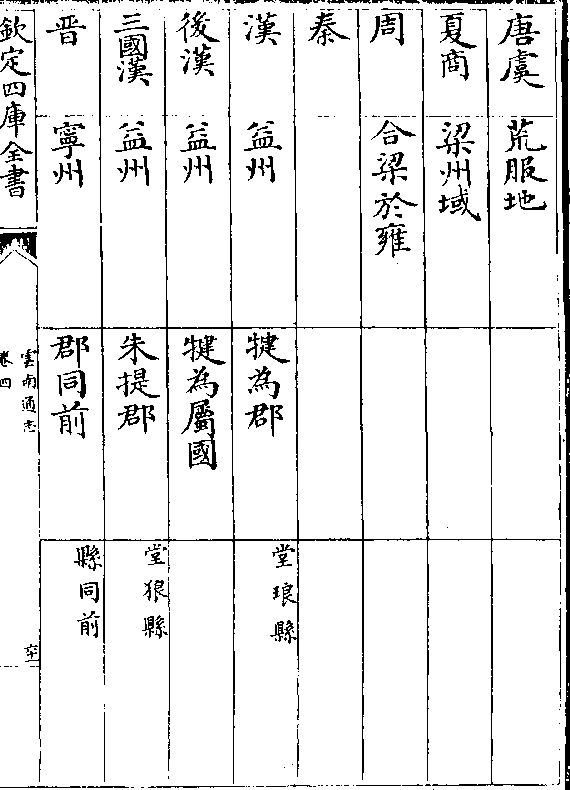 唐虞 荒服地
夏商 梁州域
周 合梁於雍
秦
漢 益州 犍為郡 堂琅縣
後漢 益州 犍為屬國
三國漢 益州 朱提郡 堂狼縣
晋 寧州 郡同前 縣同前
欽定四庫全書
雲南通志
卷四